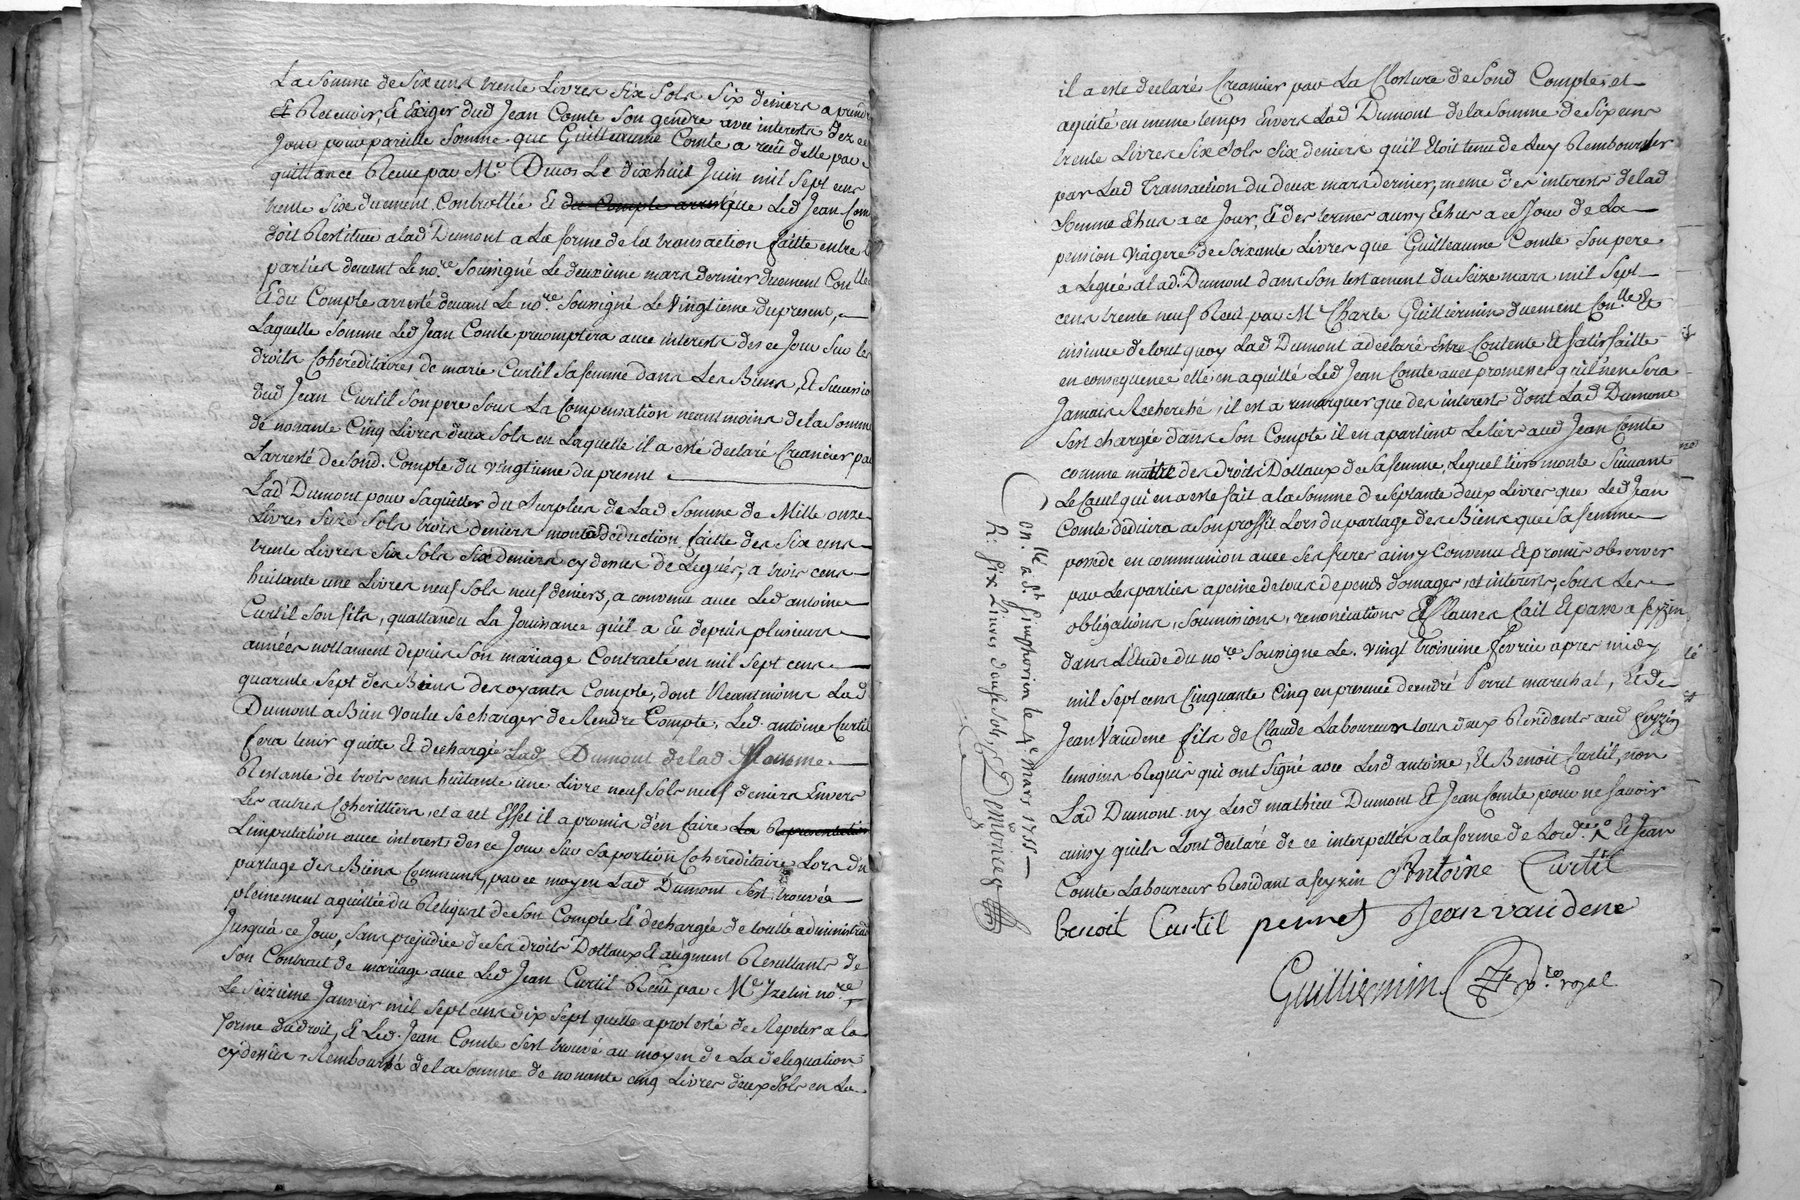 La somme de six cens trente Livres six sols six deniers a prendre
Et Recevoir, Et Exiger dud Jean Comte son gendre avec interests dez ce
Jour pour pareille somme que Guilleaume Comte a reçû d'elle par
quittance Reçue par Me. Duvos Le dixhuit Juin mil sept cens
trente six duement Controllée Et du Compte arresté que Led Jean Com
doit Restituer a lad Dumont a La forme de la transaction faitte entre l
parties devant Le nore. soussigné Le deuxieme mars dernier duement Conlle
Et du Compte arresté devant Le nore. soussigné Le vingtieme du present,
Laquelle somme Led Jean Comte precomptera avec interests des ce Jour sur les
droits Cohereditaires de marie Curtil sa femme dans Les Biens, Et succession
dud Jean Curtil son pere sous La Compensation neantmoins de la somme
de nonante Cinq Livres deux sols en Laquelle il a esté declaré Creancier par
L'arresté de sond. Compte du vingtieme du present
Lad Dumont pour s'aquitter du surplus de Lad. somme de Mille onze
Livres seize sols trois deniers montt deduction faitte des six cens
trente Livres six sols six deniers cy dessus deLegués, a trois cens
huitante une Livres neuf sols neuf deniers, a convenu avec Led antoine
Curtil son fils, qu'attandu La Jouissance qu'il a Eu depuis plusieurs
années nottament depuis son mariage Contracté en mil sept cens
quarante sept des Biens des oyants Compte, dont Neantmoins Lad
Dumont a Bien Voulu se charger de Rendre Compte, Led. antoine Curtil
fera tenir quitte Et dechargée Lad Dumont de lad somme
Restante de trois cens huitante une Livre neuf sols neuf deniers Envers
Les autres Coherittiers, et a cet Effet il a promis d'en faire La Representation
L'imputation avec interests des ce Jour sur sa portion Cohereditaire Lors du
partage des Biens Communs, par ce moyen Lad Dumont s'est trouvée
pleinement aquittée du Reliquat de son Compte Et dechargée de toutte administrat
Jusqu'a ce Jour, sans prejudice de ses droits Dottaux Et augment Resultants de
son Contract de mariage avec Led Jean Curtil Reçû par Me Yzelin nore
Le seizieme Janvier mil sept cens dix sept qu'elle a protesté de Repeter a la
forme du droit, Et Led. Jean Comte s'est trouvé au moyen de La delegation
cy dessus Remboursé de la somme de nonante cinq Livres deux sols en La
il a esté declarée Creancier par La Closture de sond Compte, et
aquité en meme temps Envers Lad Dumont de la somme de six cens
trente Livres six sols six deniers qu'il Etoit tenu de Luy Rembourser
par Lad Transaction du deux mars dernier, meme des interests de lad
somme Echus a ce Jour, Et des termes aussy Echus a ce Jour de La
pension viagere de soixante Livres que Guilleaume Comte son pere
a Leguée a lad. Dumont dans son testament du seize mars mil sept
cens trente neuf Reçû par M Charle Guilliermin duement Conlle Et
insinué de tout quoy Lad Dumont a declaré estre Contente Et satisfaitte
en consequence elle en a quitté Led Jean Comte avec promesses qu'il n'en sera
Jamais Recherché, il est a remarquer que des interests dont Lad Dumont
s'est chargée dans son Compte il en apartient Le tiers aud Jean Comte
comme maître des droits Dottaux de sa femme, Lequel tiers monte suivant
Le Calcul qui en a esté fait a la somme de septante deux Livres que Led Jean
Comte deduira a son proffit Lors du partage des Biens que sa femme
possede en communion avec ses freres ainsy Convenu Et promis observer
par Les parties a peine de tous depends domages, et interests, sous Les
obligations, soumissions, renonciations Et Clauses fait Et passé a feyzin
dans L'Etude du nore soussigné Le. vingt troisieme fevrier apres midy
mil sept cens Cinquante Cinq en presence d'andré Perret marechal, Et de
Jean Vaudene fils de Claude Laboureurs tous deux Residants aud feyzin
temoins Requis qui ont signé avec Lesd antoine, Et Benoit Curtil, non
Lad Dumont ny Lesd mathieu Dumont Et Jean Comte pour ne savoir
ainsy qu'ils L'ont declaré de ce interpellés a la forme de L'ordce Et Jean
Comte Laboureur Residant a feyzin Antoine Curtil
benoit Curtil perret Jean vaudene
Guilliermin nre royal
Conllé a St. Simphorien le 4e mars 1755
R. six Livres douse sols